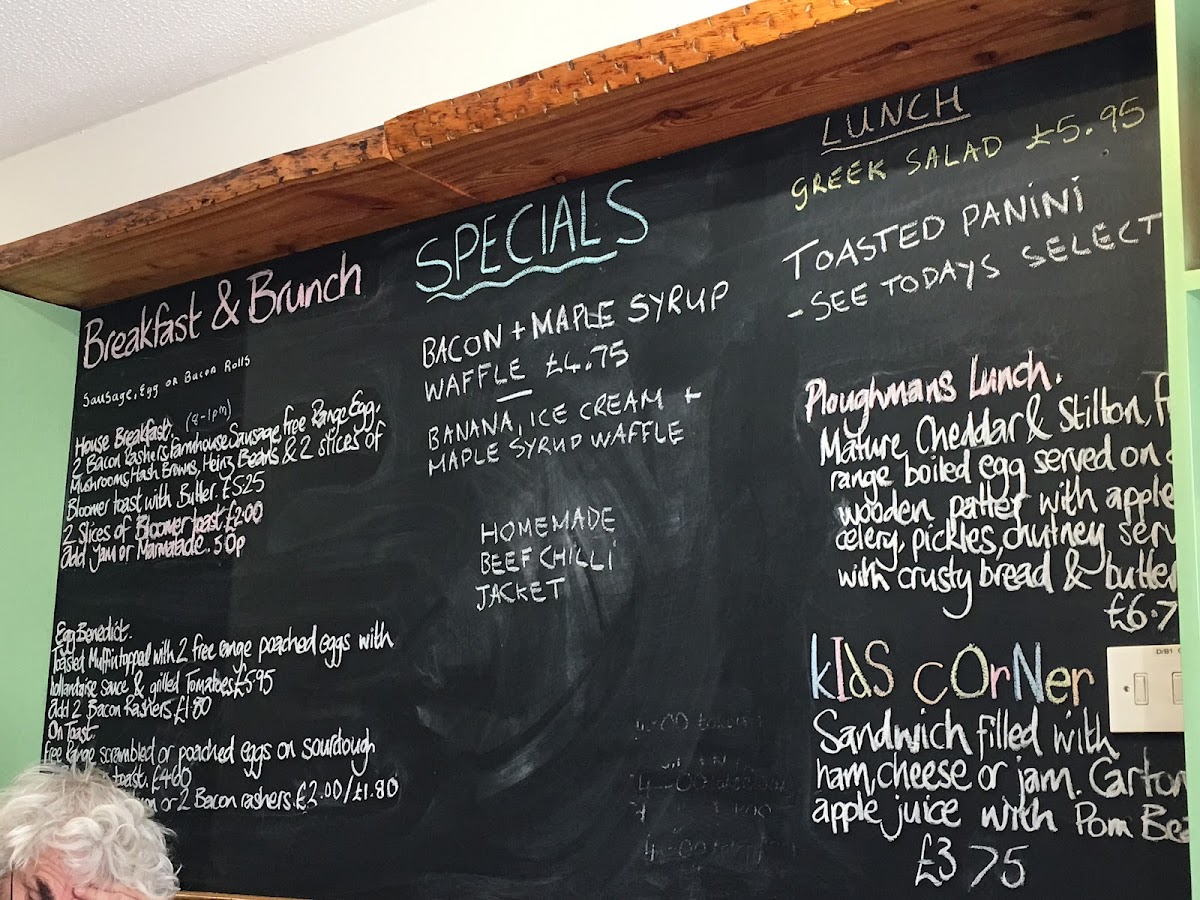 Breakfast & Brunch
Sausage, Egg or Bacon Rolls
House Breakfast. (9-1pm)
2 Bacon Rashers, Farmhouse Sausage, free Range Egg,
Mushrooms, Hash Browns, Heinz Beans & 2 slices of
Bloomer toast with Butter. £5.25
2 Slices of Bloomer toast £2.00
add Jam or Marmalade. 50p
Egg Benedict.
Toasted Muffin topped with 2 free range poached eggs with
hollandaise sauce & grilled Tomatoes £5.95
add 2 Bacon Rashers £1.80
On Toast.
Free Range scrambled or poached eggs on sourdough
toast. £4.00
or 2 Bacon rashers £2.00/£1.80
SPECIALS
BACON + MAPLE SYRUP
WAFFLE £4.75
BANANA, ICE CREAM +
MAPLE SYRUP WAFFLE
HOMEMADE
BEEF CHILLI
JACKET
LUNCH
GREEK SALAD £5.95
TOASTED PANINI
- SEE TODAYS SELECT
Ploughmans Lunch.
Mature Cheddar & Stilton, f
range boiled egg served on
wooden patter with apple
celery, pickles, chutney serv
with crusty bread & butter
£6.7
KIDS CORNER
Sandwich filled with
ham, cheese or jam. Carton
apple juice with Pom Bea
£3 75
D/B1